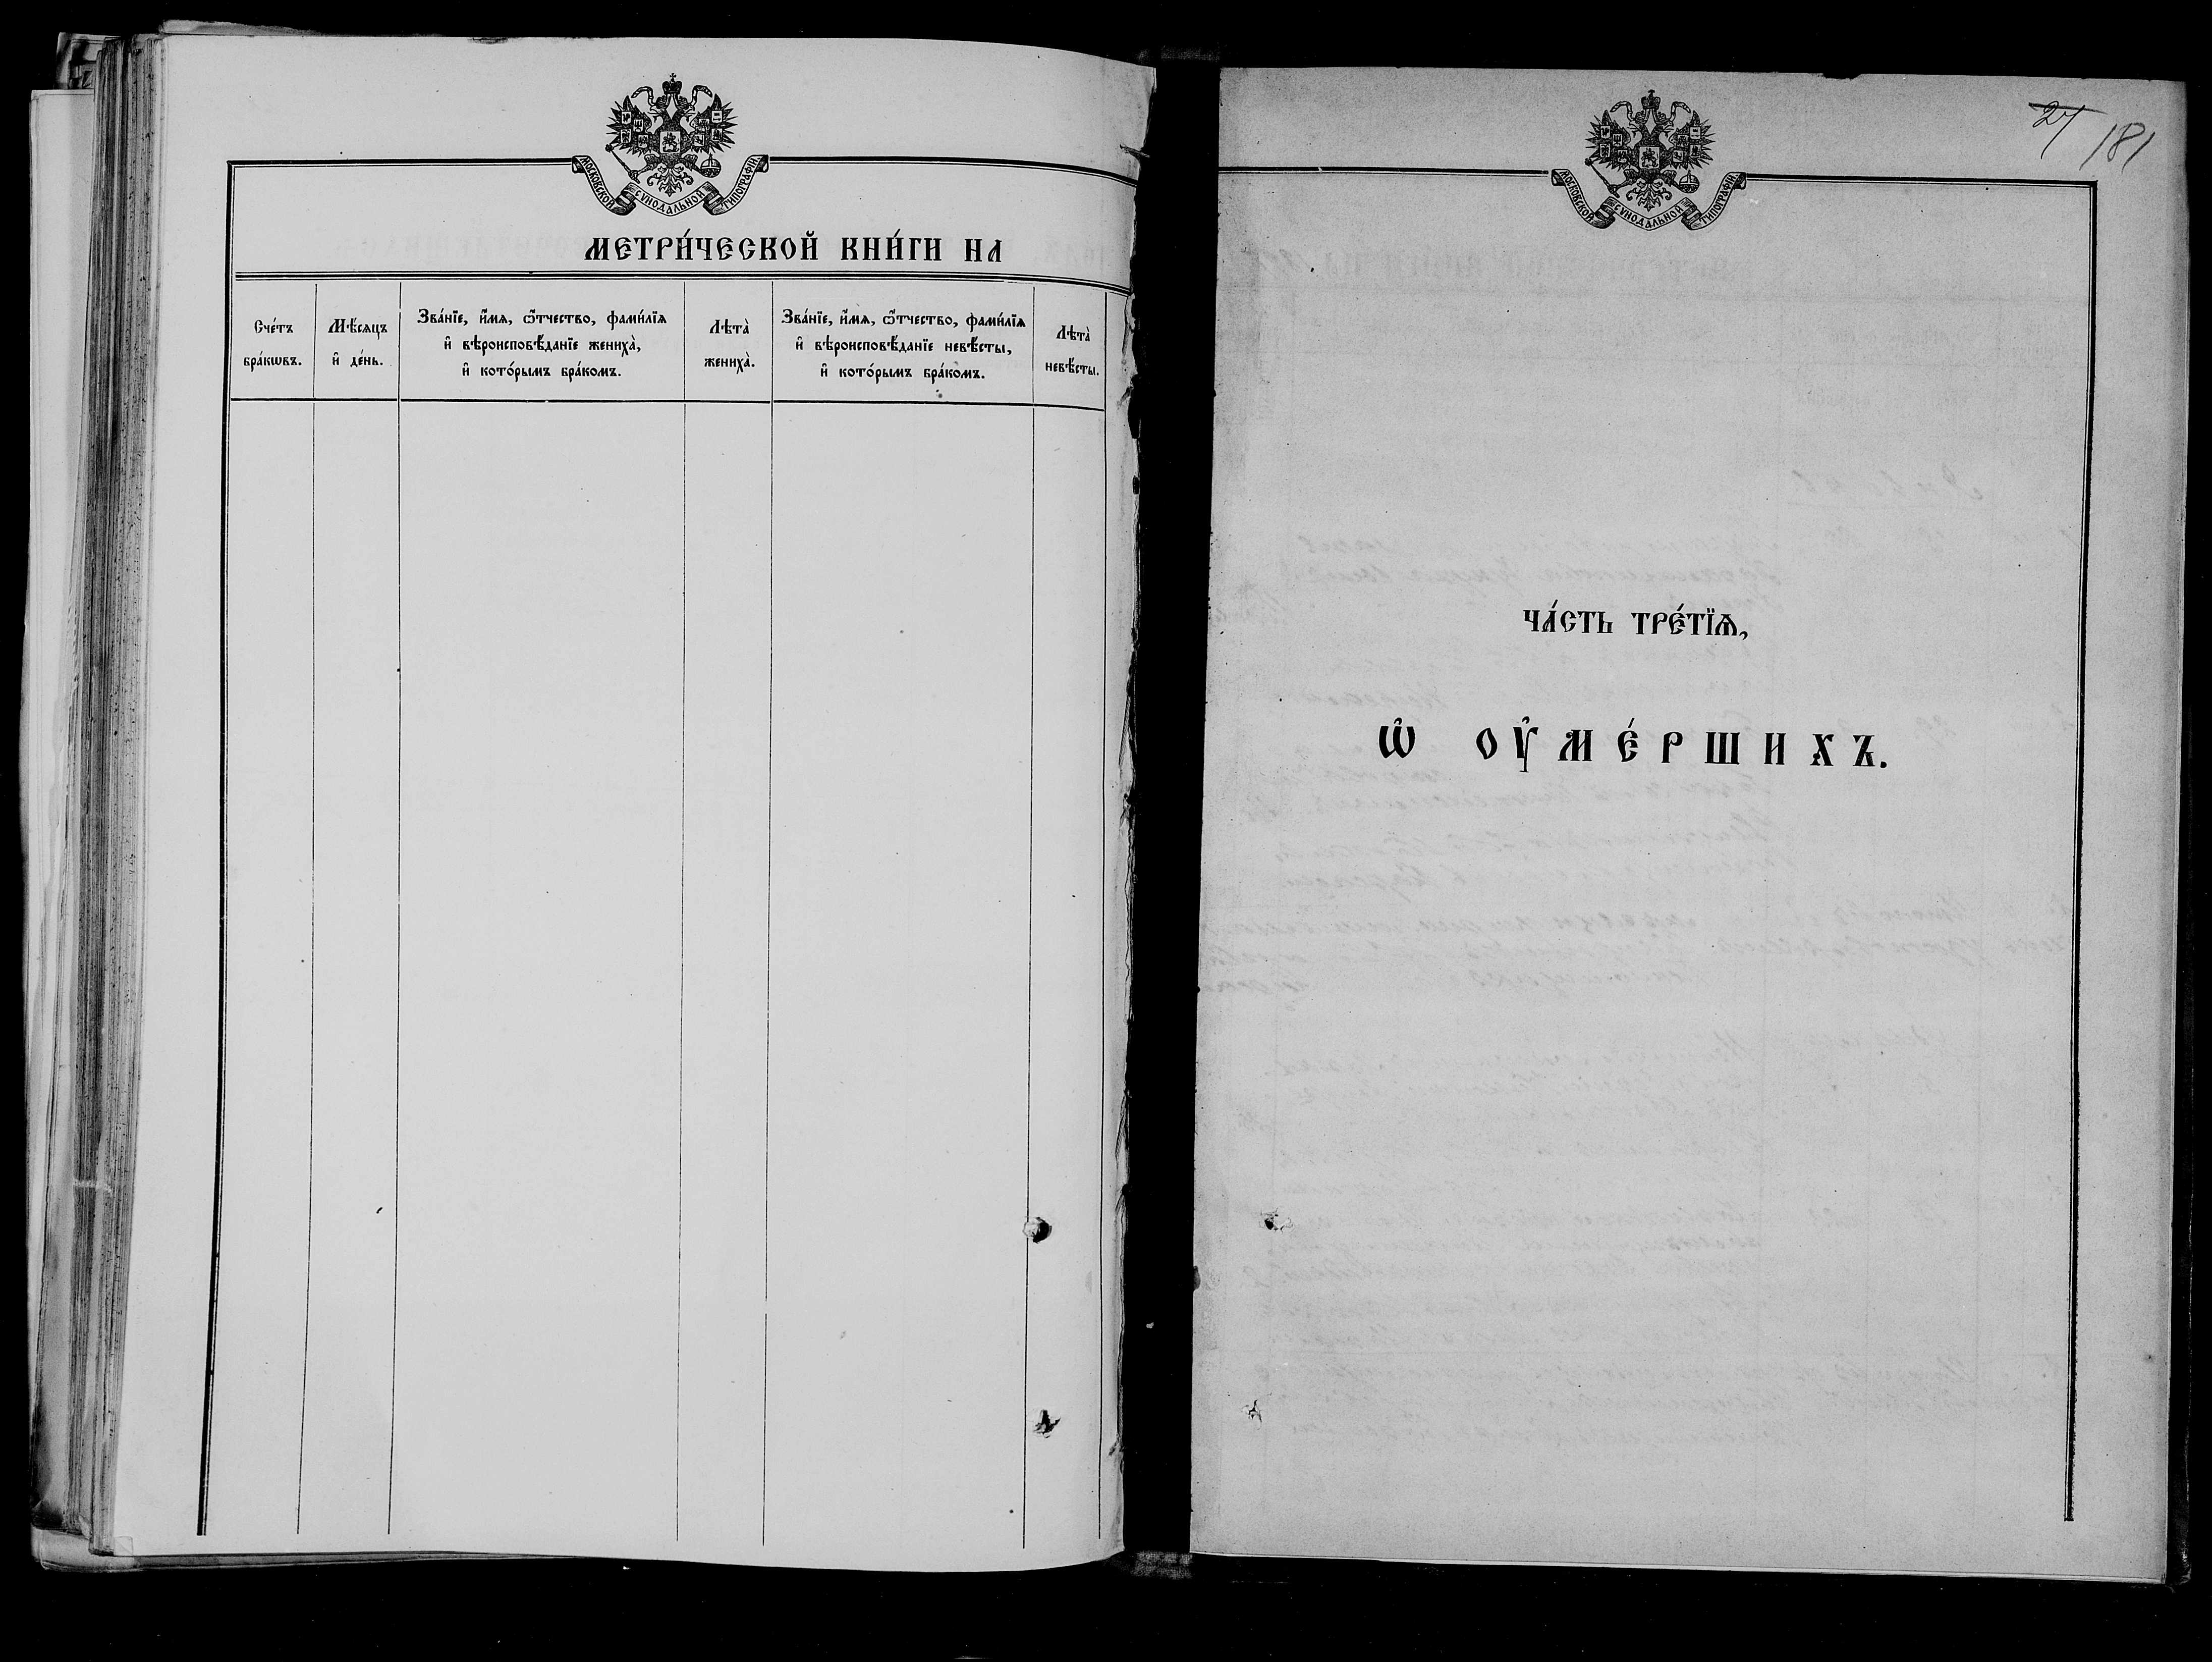 МОСКОВСКОЙ СѴНОДАЛЬНОЙ ТИПОГРАФІИ
МЕТРИ́ЧЕСКОЙ КНИ́ГИ НА
Сче́тъ
бра́кѡвъ.
Мѣ́сѧцъ
и҆ де́нь.
Зва́нїе, и҆́мѧ, ѻ҆́тчество, фами́лїѧ
и҆ вѣроисповѣ́данїе жениха̀,
и҆ кото́рымъ бра́комъ.
Лѣта̀
жениха̀.
Зва́нїе, и҆́мѧ, ѻ҆́тчество, фами́лїѧ
и҆ вѣроисповѣ́данїе невѣ́сты,
и҆ кото́рымъ бра́комъ.
Лѣта̀
невѣ́сты.
27 181
МОСКОВСКОЙ СѴНОДАЛЬНОЙ ТИПОГРАФІИ
ЧА́СТЬ ТРЕ́ТЇѦ,
Ѡ҆ ОУ҆МЕ́РШИХЪ.